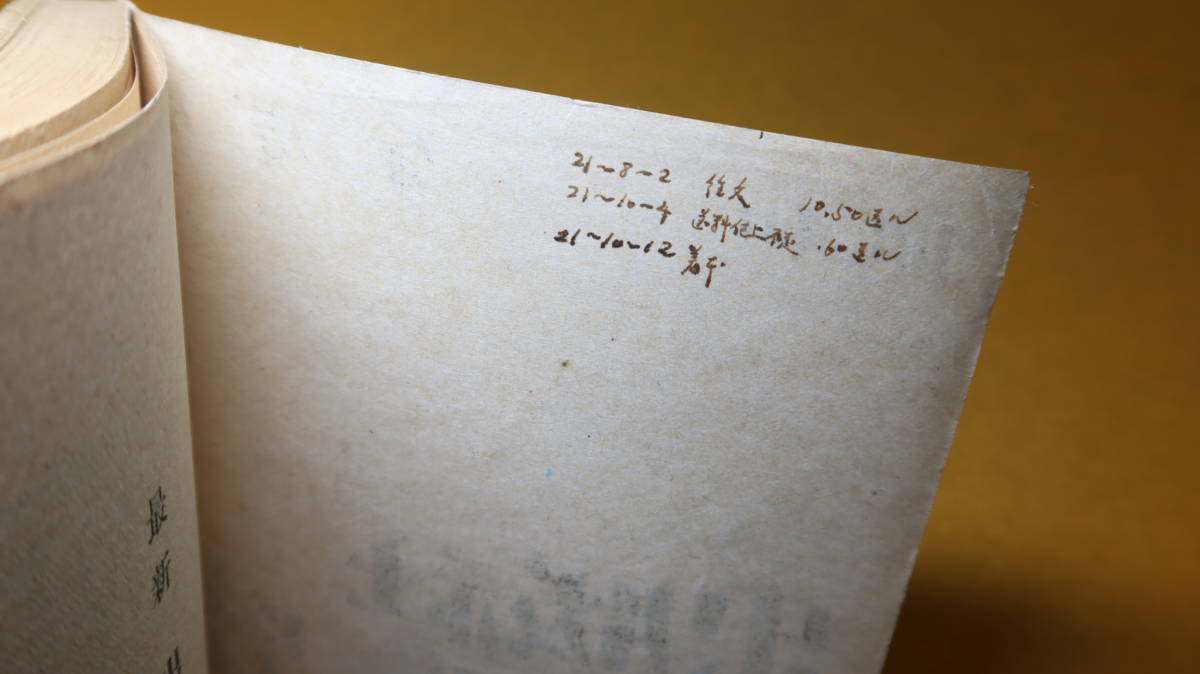 21~8~2 注文 10.50送ル
21~10~4 送料値上 .60送ル
21~10~12 着本
最新